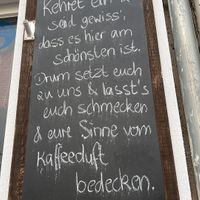 Kehret ein &
said gewiss',
dass es hier am
schönsten ist.
Drum setzt euch
zu uns & lasst's
euch schmecken
& eure Sinne vom
Kaffeeduft
bedecken.